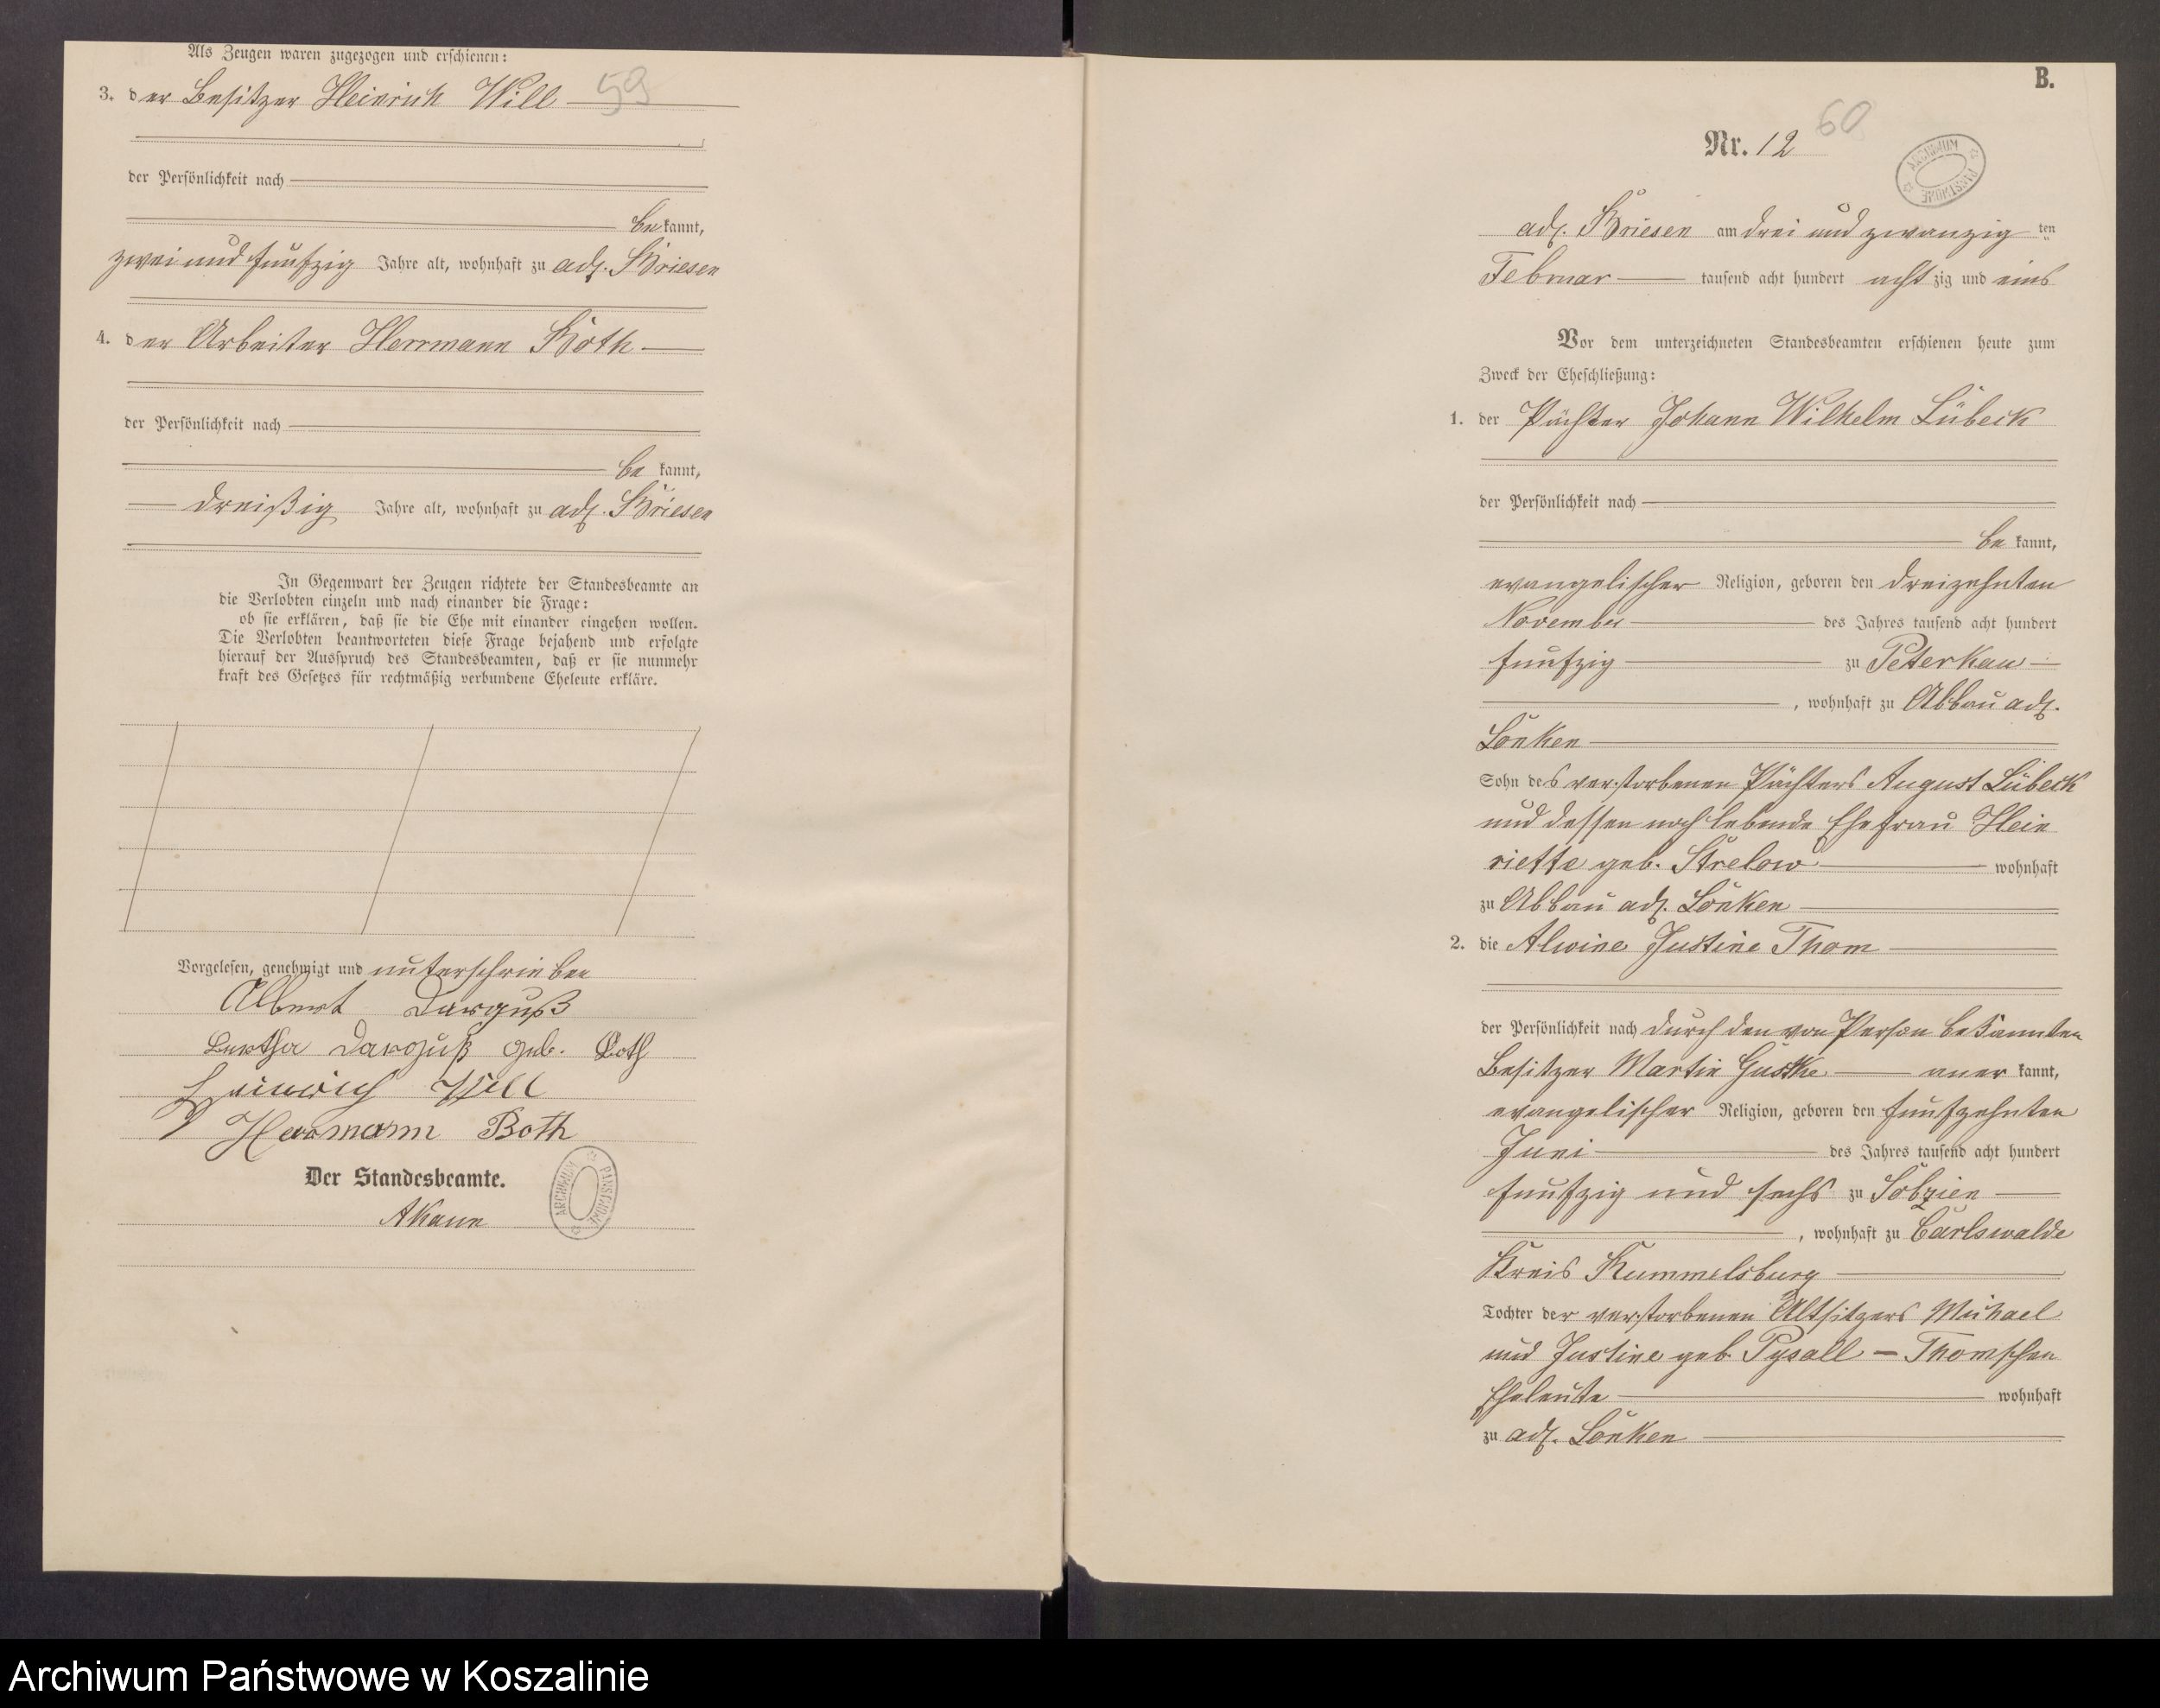 Als Zeugen waren zugezogen und erschienen:
3. der Besitzer Heinrich Will
59
der Persönlichkeit nach
bekannt,
zwei und funfzig Jahre alt, wohnhaft zu adl. Briesen
4. der Arbeiter Herrmann Both
der Persönlichkeit nach
be kannt,
dreißig Jahre alt, wohnhaft zu adl. Briesen
In Gegenwart der Zeugen richtete der Standesbeamte an
die Verlobten einzeln und nach einander die Frage:
ob sie erklären, daß sie die Ehe mit einander eingehen wollen.
Die Verlobten beantworteten diese Frage bejahend und erfolgte
hierauf der Ausspruch des Standesbeamten, daß er sie nunmehr
kraft des Gesetzes für rechtmäßig verbundene Eheleute erkläre.
Vorgelesen, genehmigt und unterschrieben
Albert Darguß
Bertha Darguß geb. Both
Heinrich Will
Herrmann Both
Der Standesbeamte.
ARCHIWUM PAŃSTWOWE
B.
Nr. 12
60
ARCHIWUM PAŃSTWOWE
adl. Briesen am drei und zwanzig ten
Februar tausend acht hundert acht zig und eins
Vor dem unterzeichneten Standesbeamten erschienen heute zum
Zweck der Eheschließung:
1. der Pächter Johann Wilhelm Lübeck
der Persönlichkeit nach
be kannt,
evangelischer Religion, geboren den dreizehnten
November des Jahres tausend acht hundert
funfzig zu Peterkau
, wohnhaft zu Abbau adl.
Lonken
Sohn des verstorbenen Pächters August Lübeck
und dessen noch lebende Ehefrau Hein
riette geb. Strelow wohnhaft
zu Abbau adl. Lonken
2. die Alwine Justine Thom
der Persönlichkeit nach durch den von Person bekannten
Besitzer Martin Gustke aner kannt,
evangelischer Religion, geboren den funfzehnten
Juni des Jahres tausend acht hundert
funfzig und sechs zu
, wohnhaft zu Carlswalde
Kreis Rummelsburg
Tochter der verstorbenen Altsitzers Michael
und Justine geb. Pysall - Thomschen
Eheleute wohnhaft
zu adl. Lonken
Archiwum Państwowe w Koszalinie